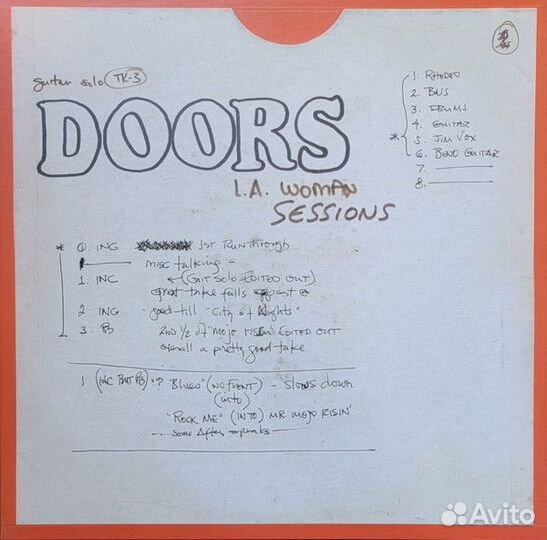 guitar solo TK-3
DOORS
L.A. WOMAN
SESSIONS
1. RHODES
2. BASS
3. DRUMS
4. GUITAR
* 5. JIM VOX
6. BEND GUITAR
7.
8.
* 0. INC 1ST RUNTHROUGH
misc talking -
1. INC ← (GIT SOLO EDITED OUT)
great take falls apart @
2 ING good till "City of Nights"
3. PB 2ND 1/2 of "MOJO RISIN" EDITED OUT
overall a pretty good take
1 (INC BUT PB) "? Blues" (NO FRONT) - Slows down
(into)
"ROCK ME" (INTO) MR MOJO RISIN'
- some After speaks -
Avito